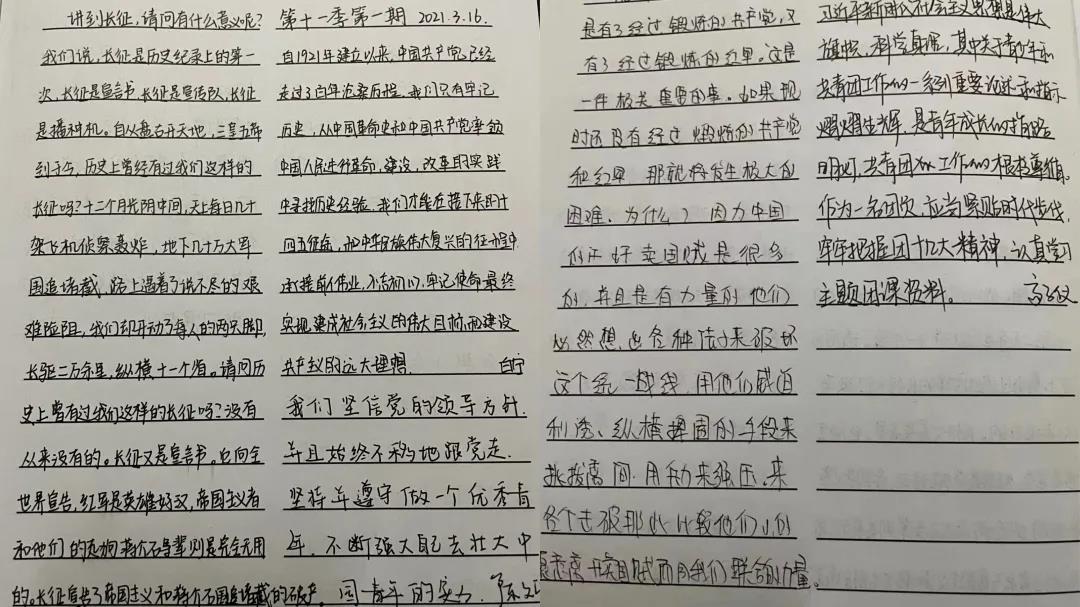 讲到长征，请问有什么意义呢？
我们说，长征是历史纪录上的第一
次，长征是宣言书，长征是宣传队，长征
是播种机。自从盘古开天地，三皇五帝
到于今，历史上曾经有过我们这样的
长征吗？十二个月光阴中间，天上每日几十
架飞机侦察轰炸，地下几十万大军
围追堵截，路上遇着了说不尽的艰
难险阻，我们却开动了每人的两只脚，
长驱二万余里，纵横十一个省。请问历
史上曾有过我们这样的长征吗？没有
从来没有的。长征又是宣言书。它向全
世界宣告，红军是英雄好汉，帝国主义者
和他们的走狗蒋介石等辈则是完全无用
的。长征宣告了帝国主义和蒋介石围追堵截的破产。
第十一季第一期 2021.3.16.
自1921年建立以来，中国共产党已经
走过了百年沧桑历程，我们只有牢记
历史，从中国革命史和中国共产党率领
中国人民进行革命，建设，改革的实践
中寻找历史经验，我们才能在接下来的十
四五征痕，和中华民族伟大复兴的征程中
承接前人伟业，不忘初心，牢记使命最终
实现建成社会主义的伟大目标，而建设
共产主义的远大理想。
我们坚信党的领导方针.
并且始终不移地跟党走.
坚持并遵守做一个优秀青
年，不断强大自己去壮大中
国青年的实力.
是有了经过锻炼的共产党，又
有了经过锻炼的红军。这是
一件极关重要的事。如果现
时还没有经过锻炼的共产党
和红军，那就将发生极大的
困难。为什么？因为中国
的汉奸卖国贼是很多
的，并且是有力量的他们
必然想出各种法子来破坏
这个统一战线，用他们威迫
利诱、纵横捭阖的手段来
挑拨离间，用兵来强压，来
各个击破那些比较他们小的
愿意离开卖国贼而同我们联合的力量。
习近平新时代社会主义思想是伟大
旗帜、科学真理，其中关于青年和
共青团工作的一系列重要论述和指示
熠熠生辉，是青年成长的指路
明灯，共青团的工作的根本遵循。
作为一名团员，应当紧贴时代步伐，
牢牢把握团十九大精神，认真学习
主题团课资料。